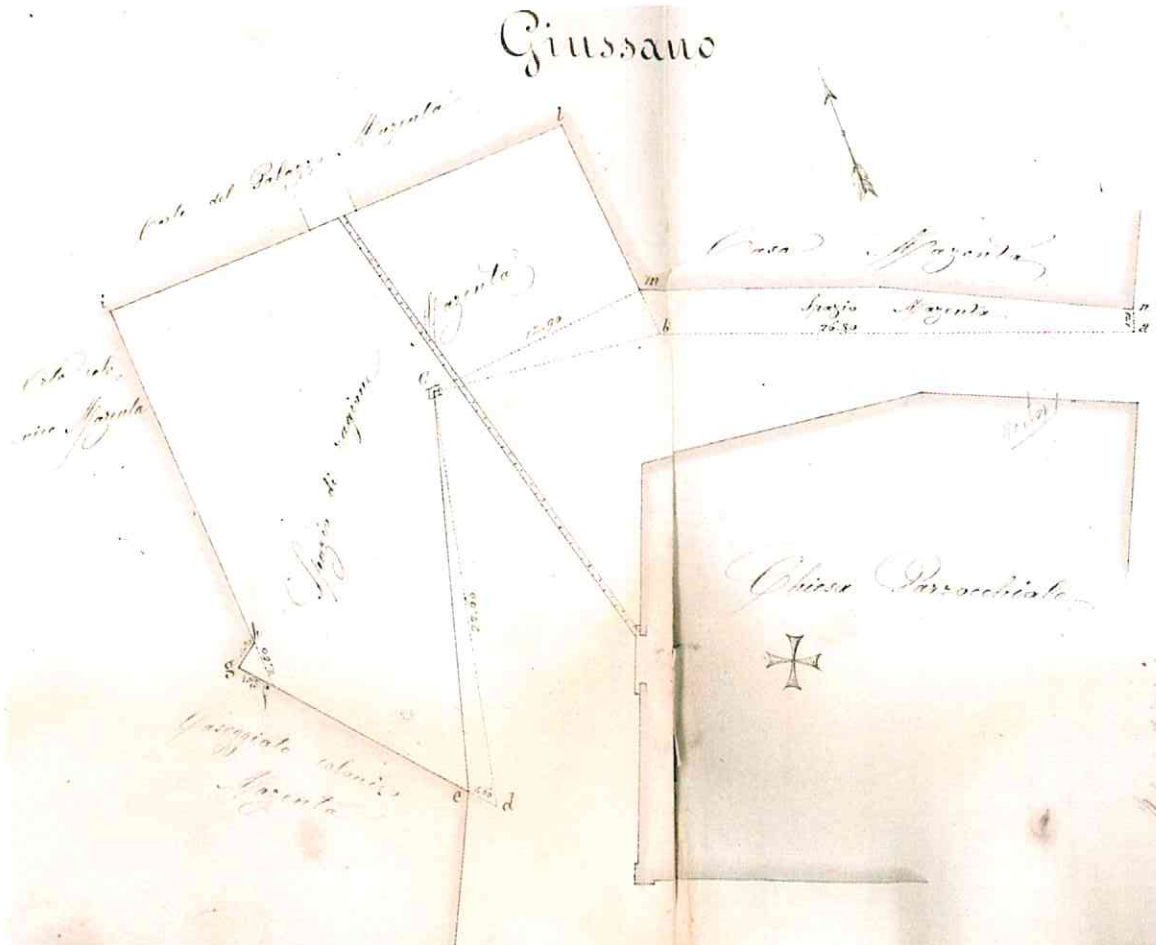 Giussano
Corte del Palazzo Mazenta
l
i
Mazenta
Casa Mazenta
m
12.90
b
Spazio Mazenta
26.80
n
a
c
Orto colo
nico Mazenta
Spazio di ragione
Chiesa Parrocchiale
g
Caseggiato colonico
Mazenta
e
d